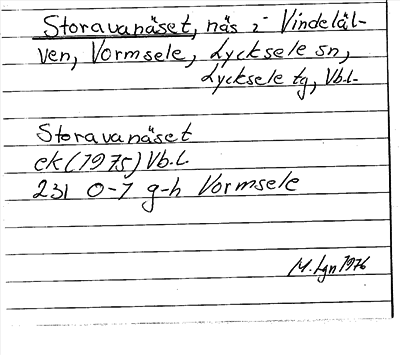 Storavanäset, näs i Vindeläl-
ven, Vormsele, Lycksele sn,
Lycksele tg, Vb.l.
Storavanäset
ek (1975) Vb.l.
231 0-1 g-h Vormsele
M. Lgn 1976